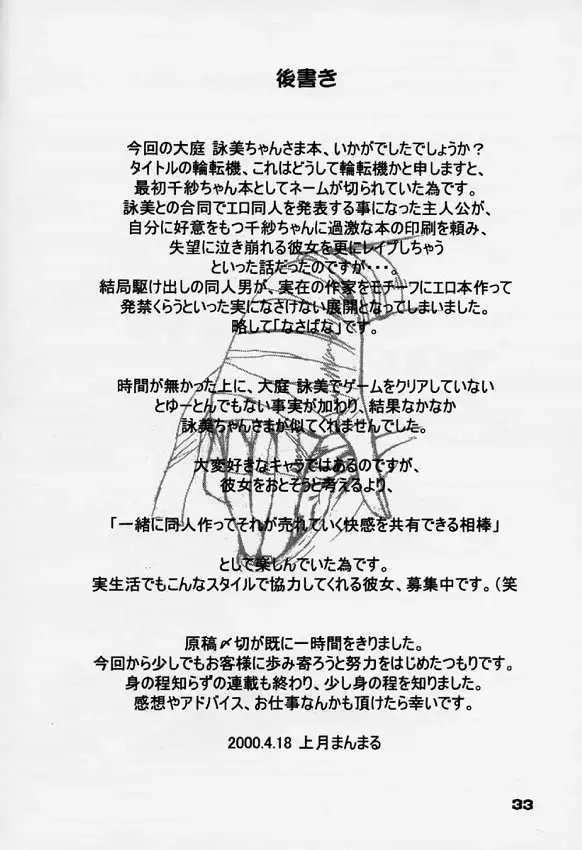 後書き
今回の大庭 詠美ちゃんさま本、いかがでしたでしょうか？
タイトルの輪転機、これはどうして輪転機かと申しますと、
最初千紗ちゃん本としてネームが切られていた為です。
詠美との合同でエロ同人を発表する事になった主人公が、
自分に好意をもつ千紗ちゃんに過激な本の印刷を頼み、
失望に泣き崩れる彼女を更にレイプしちゃう
といった話だったのですが・・・。
結局駆け出しの同人男が、実在の作家をモチーフにエロ本作って
発禁くらうといった実になさけない展開となってしまいました。
略して「なさばな」です。
時間が無かった上に、大庭 詠美でゲームをクリアしていない
とゆーとんでもない事実が加わり、結果なかなか
詠美ちゃんさまが似てくれませんでした。
大変好きなキャラではあるのですが、
彼女をおとそうと考えるより、
「一緒に同人作ってそれが売れていく快感を共有できる相棒」
として楽しんでいた為です。
実生活でもこんなスタイルで協力してくれる彼女、募集中です。（笑
原稿〆切が既に一時間をきりました。
今回から少しでもお客様に歩み寄ろうと努力をはじめたつもりです。
身の程知らずの連載も終わり、少し身の程を知りました。
感想やアドバイス、お仕事なんかも頂けたら幸いです。
2000.4.18 上月まんまる
33